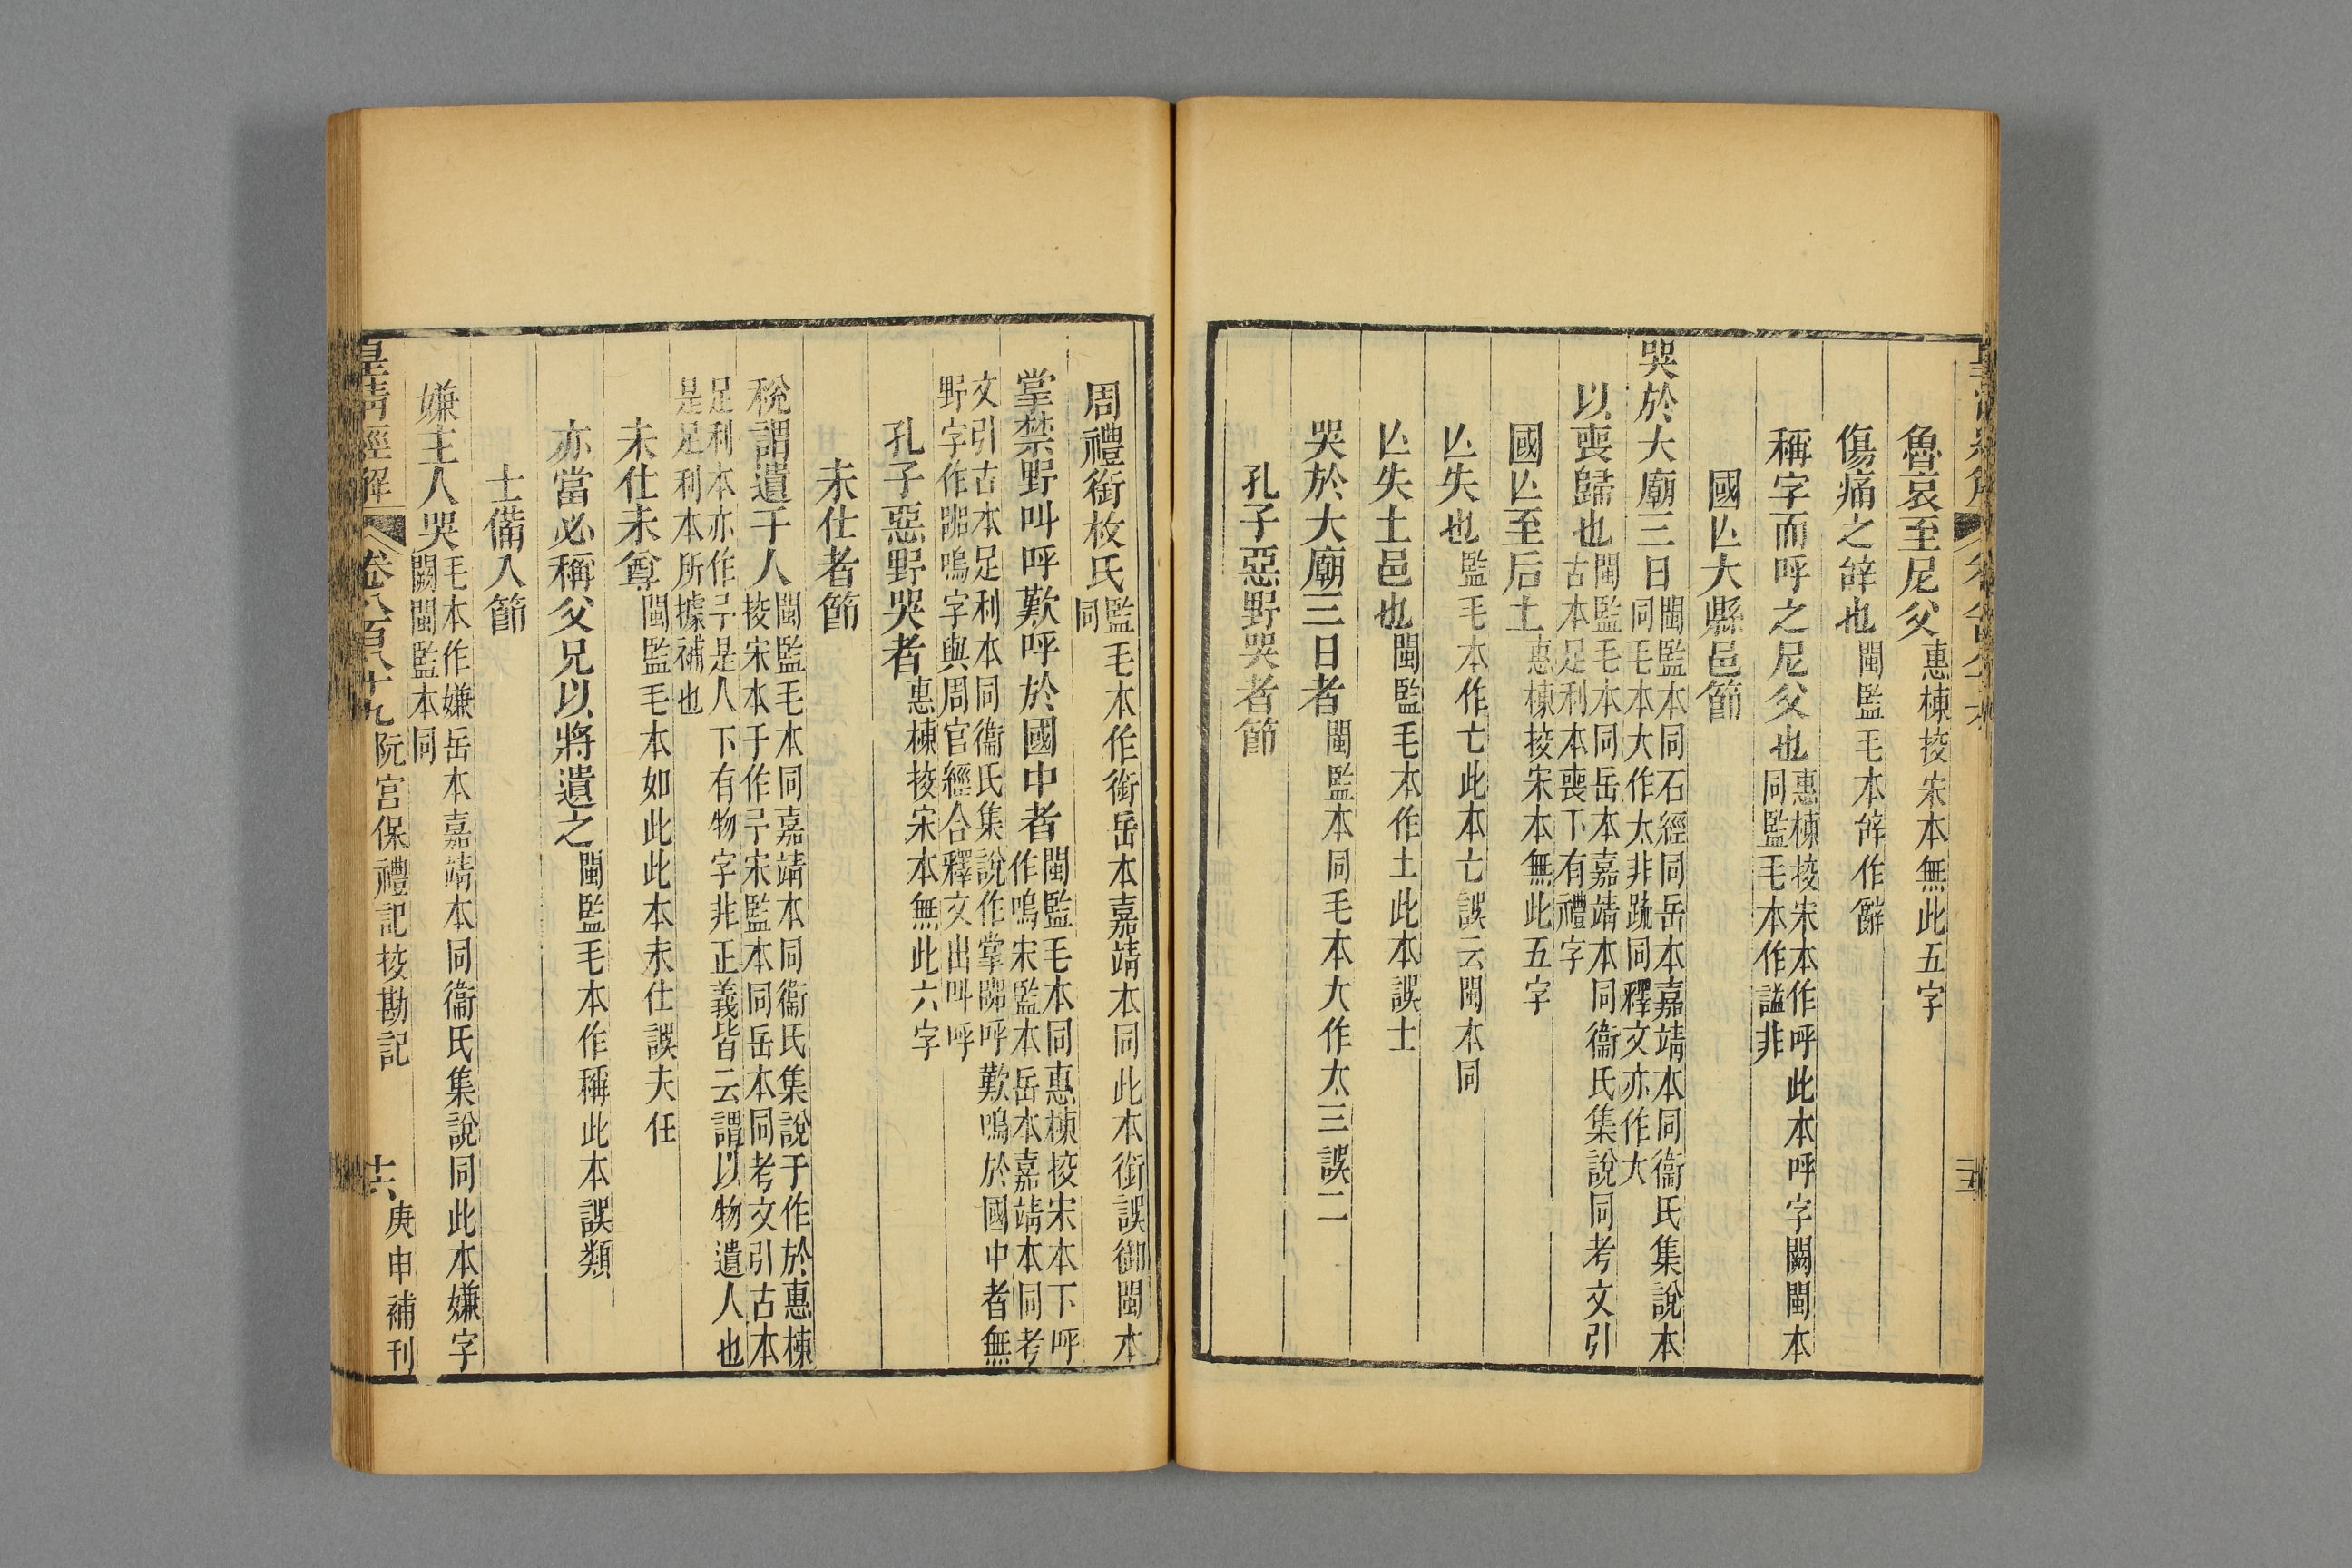 魯哀至尼父惠棟挍宋本無此五字
傷痛之辝也閩監毛本辝作辭
稱字而呼之尼父也惠棟挍宋本作呼此本呼字闕閩本
同監毛本作謚非
國亾大縣邑節
哭於大廟三日閩監本同石經同岳本嘉靖本同衞氏集說本
同毛本大作太非䟽同釋文亦作大
以喪歸也閩監毛本同岳本嘉靖本同衞氏集說同考文引
古本足利本喪下有禮字
國亾至后土惠棟挍宋本無此五字
亾失也監毛本作亡此本亡誤云閩本同
亾失土邑也閩監毛本作土此本誤士
哭於大廟三日者閩監本同毛本大作太三誤二
孔子惡野哭者節
周禮銜枚氏監毛本作銜岳本嘉靖本同此本銜誤御閩本
同
掌禁野叫呼歎呼於國中者閩監毛本同惠棟挍宋本下呼
作嗚宋監本岳本嘉靖本同考
文引古本足利本同衞氏集說作掌嘂呼歎嗚於國中者無
野字作嘂嗚字與周官經合釋文出叫呼
孔子惡野哭者惠棟挍宋本無此六字
未仕者節
稅謂遺于人閩監毛本同嘉靖本同衞氏集說于作於惠棟
挍宋本于作予宋監本同岳本同考文引古本
足利本亦作予是人下有物字非正義皆云謂以物遺人也
是足利本所據補也
未仕未尊閩監毛本如此此本未仕誤夫任
亦當必稱父兄以將遺之閩監毛本作稱此本誤類
士備入節
嫌主人哭毛本作嫌岳本嘉靖本同衞氏集說同此本嫌字
闕閩監本同
皇清經解 卷八百八十九 阮宮保禮記挍勘記 十六 庚申補刊